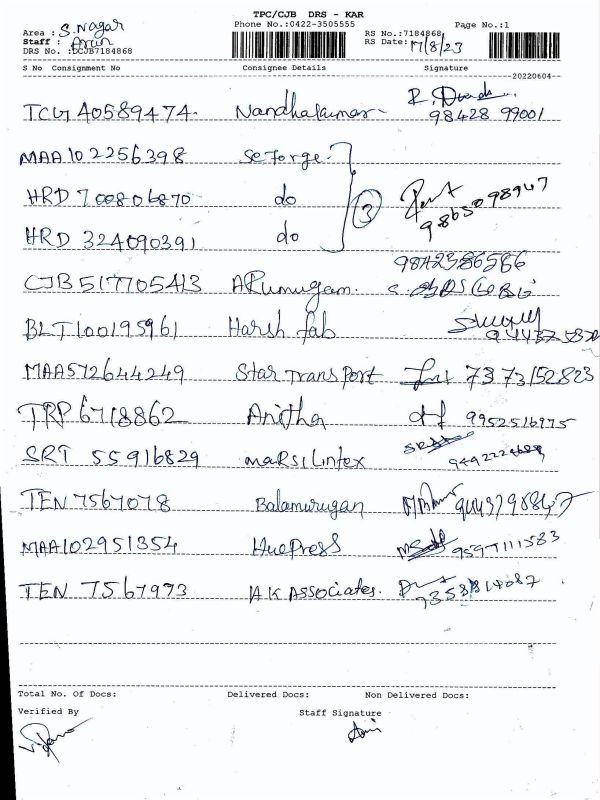 TPC/CJB DRS - KAR
Phone No.:0422-3505555
Page No.:1
Area : S.Nagar
RS No.:7184868
Staff : Arun
RS Date: 17/8/23
DRS No. :DCJB7184868
S No Consignment No Consignee Details Signature
20220604
TCG 40589474. Nandhakumar 98428 99001
MAA 102256398 Seforge.
HRD 700806870 do 3 9865098947
HRD 324090391 do
CJB 517705413 ARumugam.
BLT 100195961 Harsh fab
MAA572644249 Star Transport 7373152823
TRP 6718862 Anitha 9952516975
SRT 55916829 marsilintex
TEN 7567078 Balamurugan
MAA102951354 HuePress 9597111583
TEN 7567973 AK Associates.
Total No. Of Docs: Delivered Docs: Non Delivered Docs:
Verified By Staff Signature